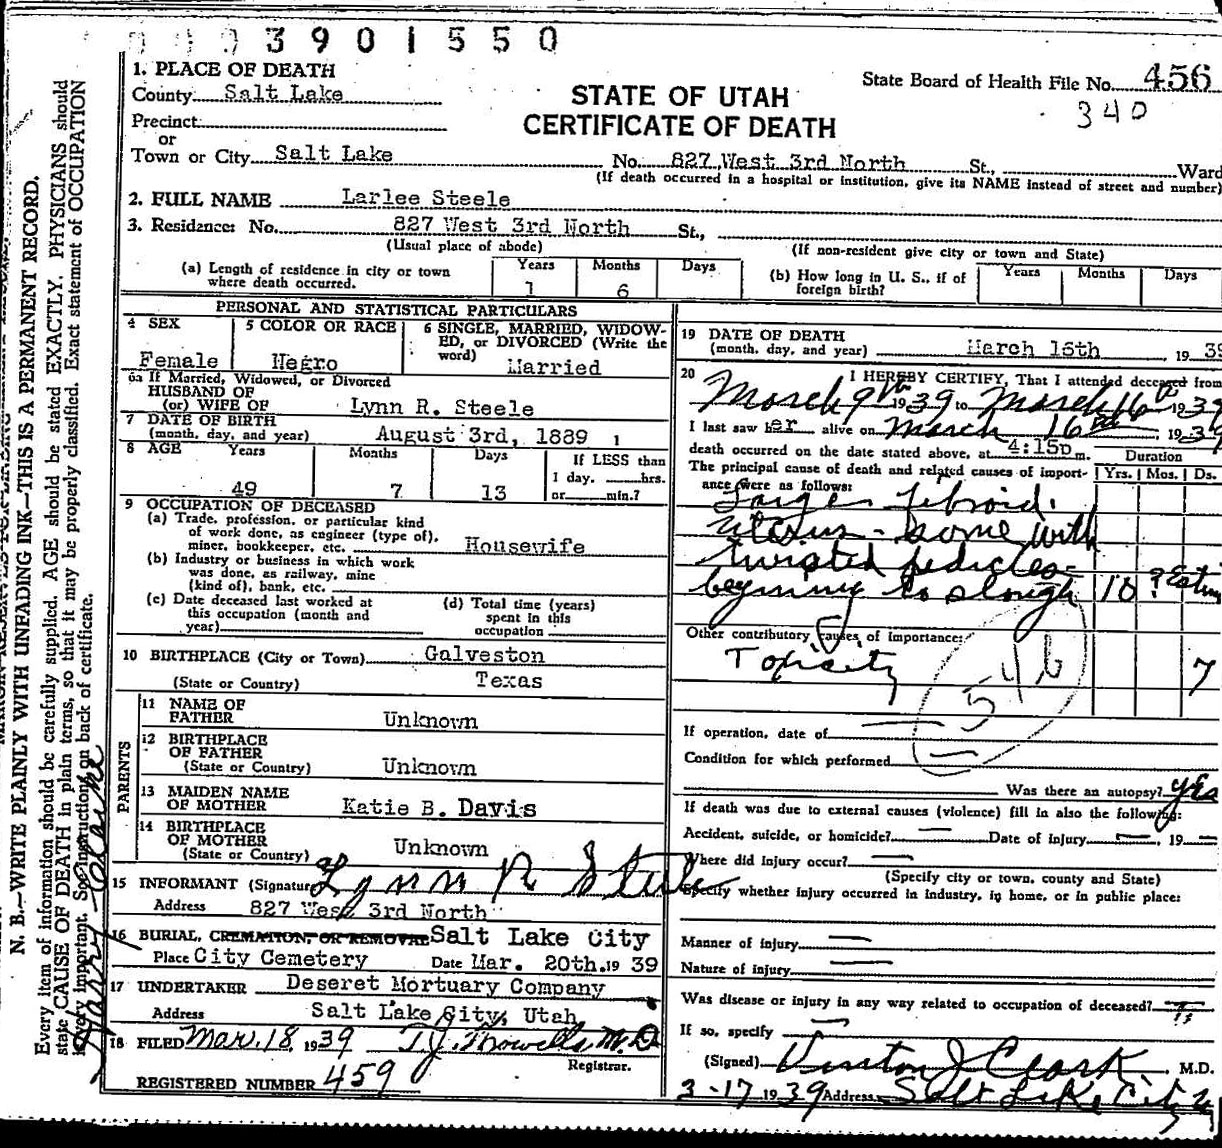 3901550
1. PLACE OF DEATH
County Salt Lake
State Board of Health File No. 456
340
STATE OF UTAH
CERTIFICATE OF DEATH
Precinct
or
Town or City Salt Lake No. 827 West 3rd North St., Ward
(If death occurred in a hospital or institution, give its NAME instead of street and number)
2. FULL NAME Larlee Steele
3. Residence: No. 827 West 3rd North St.,
(Usual place of abode) (If non-resident give city or town and State)
(a) Length of residence in city or town where death occurred. Years 1 Months 6 Days
(b) How long in U. S., if of foreign birth? Years Months Days
PERSONAL AND STATISTICAL PARTICULARS
4 SEX Female
5 COLOR OR RACE Negro
6 SINGLE, MARRIED, WIDOWED, OR DIVORCED (Write the word) Married
6a If Married, Widowed, or Divorced
HUSBAND OF
(or) WIFE OF Lynn R. Steele
7 DATE OF BIRTH
(month, day, and year) August 3rd, 1889
8 AGE Years 49 Months 7 Days 13 If LESS than
1 day, hrs.
or min.?
9 OCCUPATION OF DECEASED
(a) Trade, profession, or particular kind
of work done, as engineer (type of),
miner, bookkeeper, etc. Housewife
(b) Industry or business in which work
was done, as railway, mine
(kind of), bank, etc.
(c) Date deceased last worked at
this occupation (month and
year)
(d) Total time (years)
spent in this
occupation
10 BIRTHPLACE (City or Town) Galveston
(State or Country) Texas
PARENTS
11 NAME OF
FATHER Unknown
12 BIRTHPLACE
OF FATHER
(State or Country) Unknown
13 MAIDEN NAME
OF MOTHER Katie B. Davis
14 BIRTHPLACE
OF MOTHER
(State or Country) Unknown
15 INFORMANT (Signature) Lynn R Steele
Address 827 West 3rd North
16 BURIAL, CREMATION, OR REMOVAL Salt Lake City
Place City Cemetery Date Mar. 20th. 1939
17 UNDERTAKER Deseret Mortuary Company
Address Salt Lake City, Utah
18 FILED Mar. 18, 1939 T.J. Howells M.D.
Registrar.
REGISTERED NUMBER 459
19 DATE OF DEATH
(month, day, and year) March 16th, 1939
20 I HEREBY CERTIFY, That I attended deceased from
March 9th 1939 to March 16th 1939
I last saw her alive on March 16 1939
death occurred on the date stated above, at 4:15p m. Duration
The principal cause of death and related causes of importance were as follows: Yrs. Mos. Ds.
Large fibroid
uterus - some with
twisted pedicles -
beginning to slough 10 ?
Other contributory causes of importance:
Toxicity 7
54b
If operation, date of
Condition for which performed
Was there an autopsy? yes
If death was due to external causes (violence) fill in also the following:
Accident, suicide, or homicide? Date of injury , 19
Where did injury occur?
(Specify city or town, county and State)
Specify whether injury occurred in industry, in home, or in public place:
Manner of injury
Nature of injury
Was disease or injury in any way related to occupation of deceased?
If so, specify
(Signed) J Clark M.D.
3-17 1939 Address Salt Lake City
N. B.—WRITE PLAINLY WITH UNFADING INK—THIS IS A PERMANENT RECORD.
Every item of information should be carefully supplied. AGE should be stated EXACTLY. PHYSICIANS should
state CAUSE OF DEATH in plain terms, so that it may be properly classified. Exact statement of OCCUPATION
very important. See instructions on back of certificate.
Harry Clarke